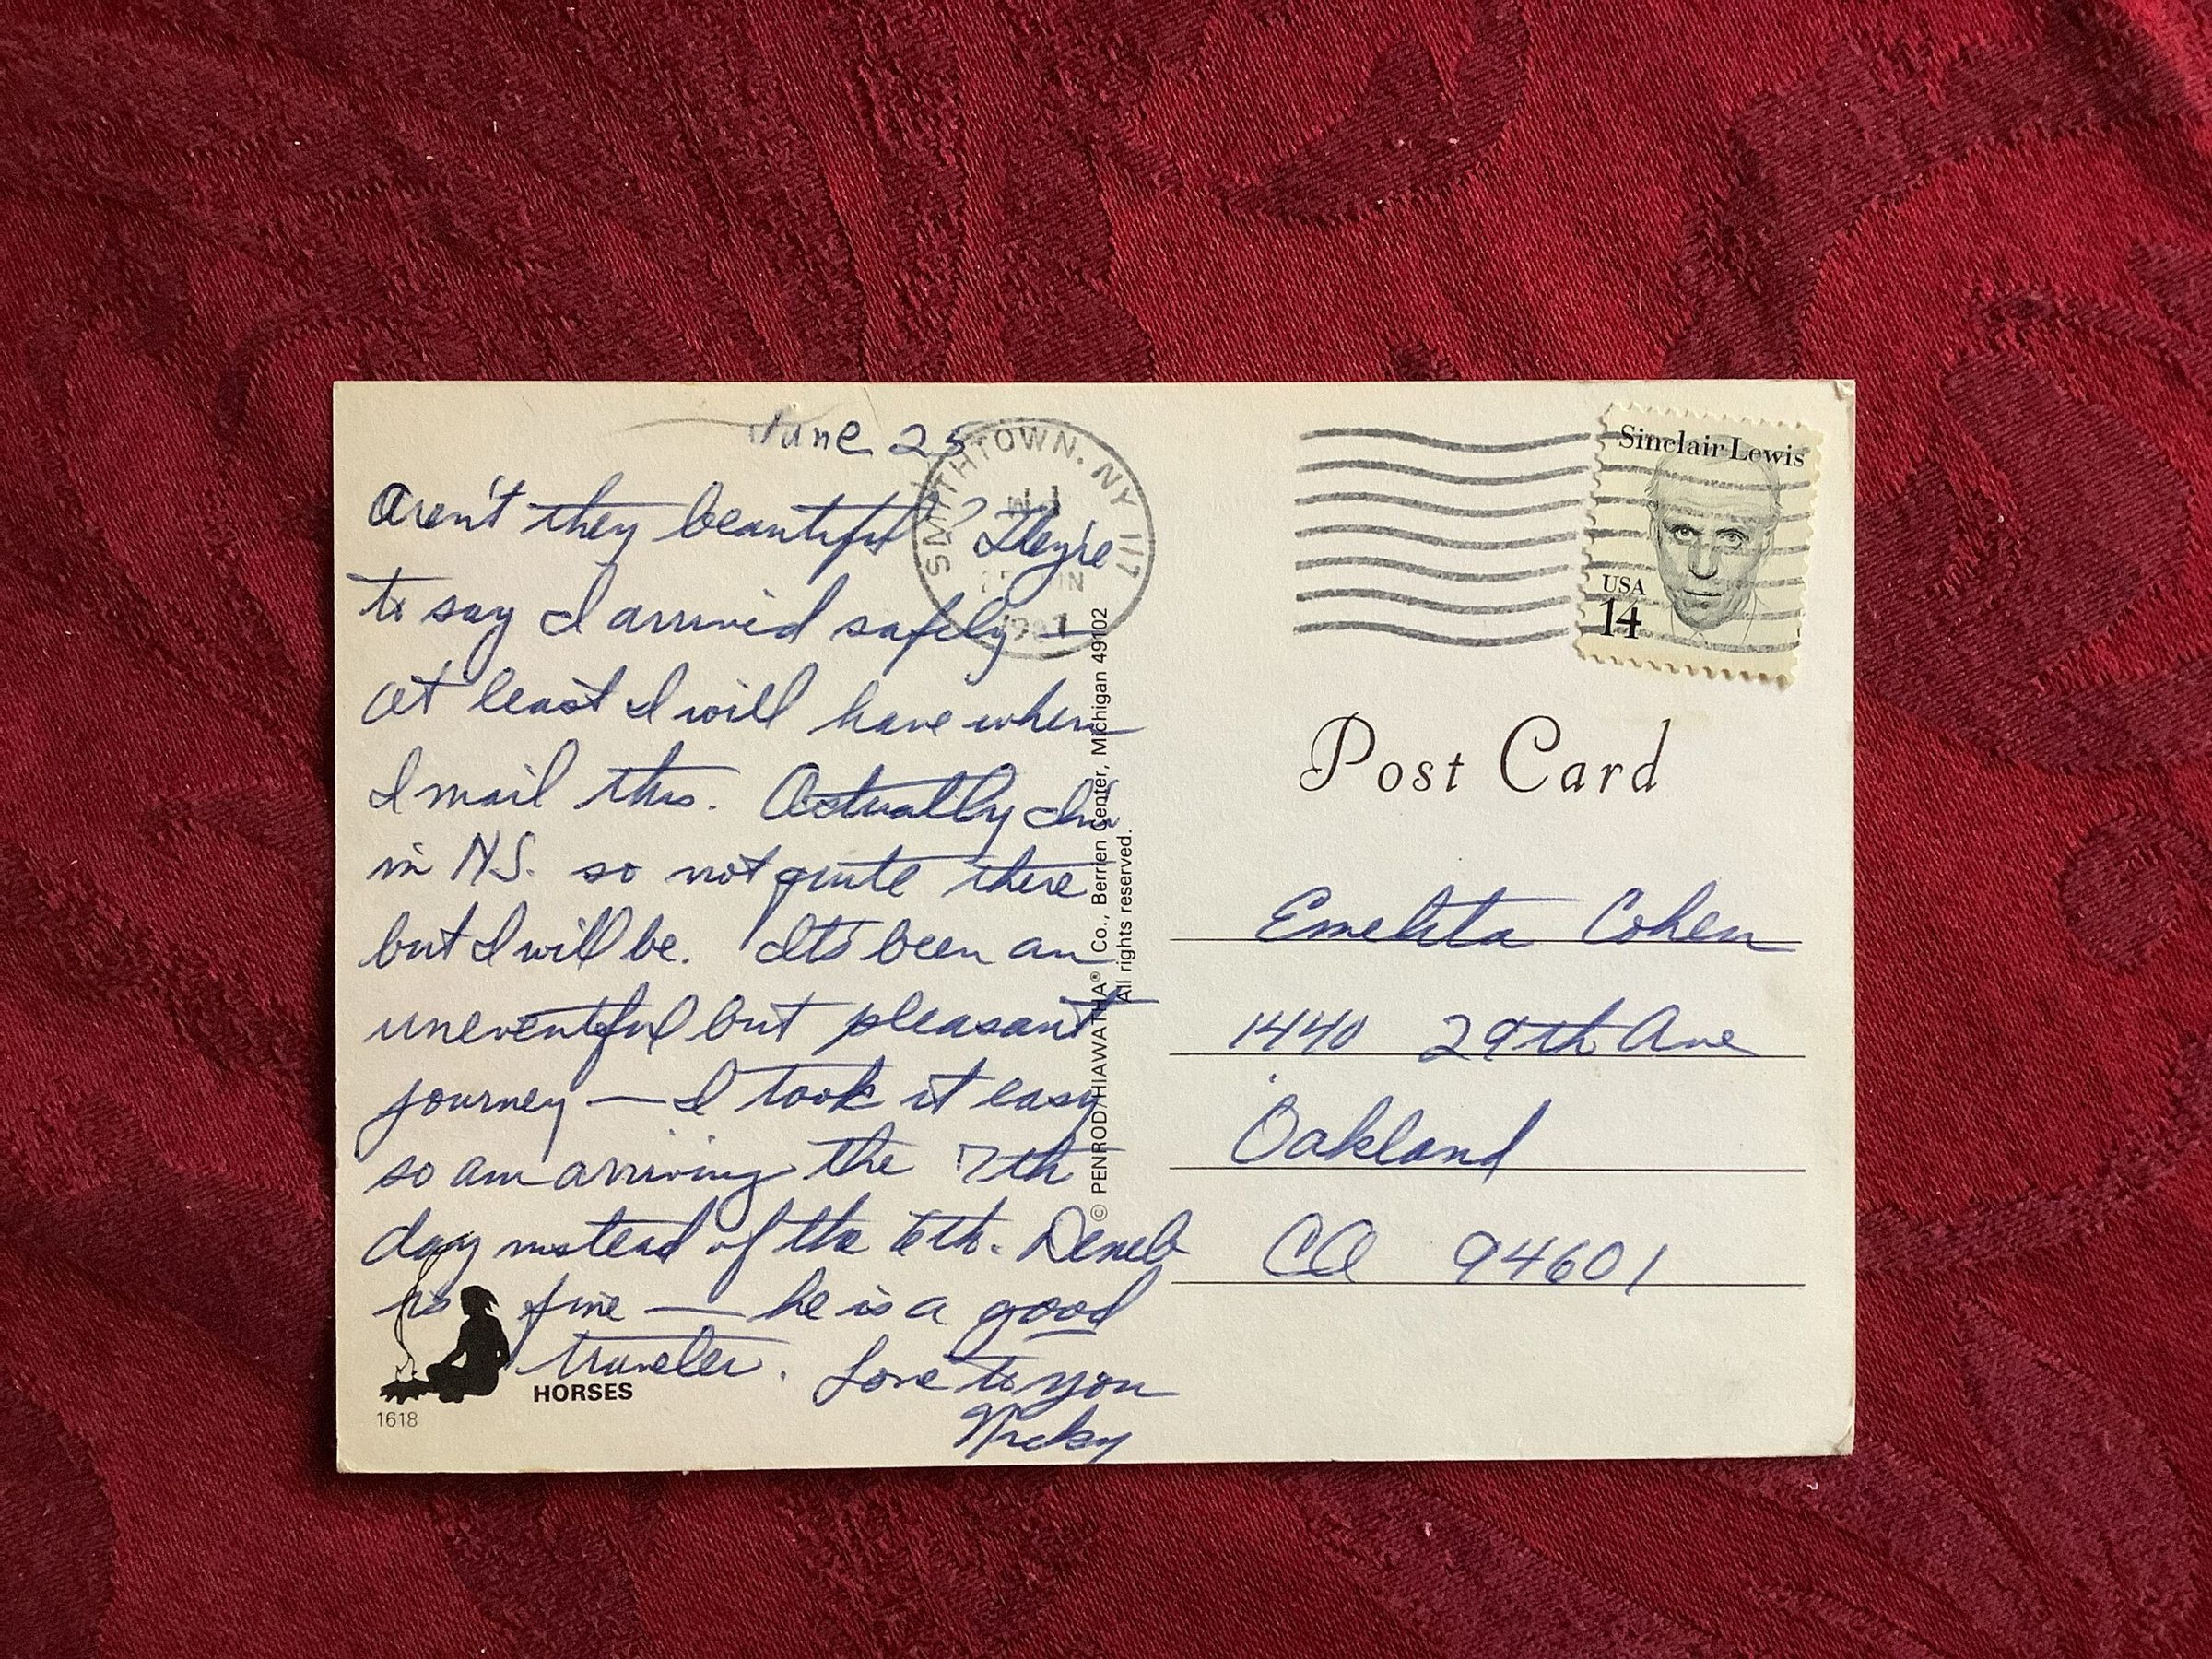 June 25
Aren't they beautiful? They're
to say I arrived safely —
at least I will have when
I mail this. Actually I'm
in N.J. so not quite there
but I will be. It's been an
uneventful but pleasant
journey — I took it easy
so am arriving the 7th
day instead of the 6th. Deneb
is fine — he is a good
traveler. Love to you
Nicky
HORSES
1618
© PENROD/HIAWATHA® Co., Berrien Center, Michigan 49102
All rights reserved.
SMITHTOWN, NY 117
Sinclair Lewis
USA
14
Post Card
Emelita Cohen
1440 29th Ave
Oakland
CA 94601